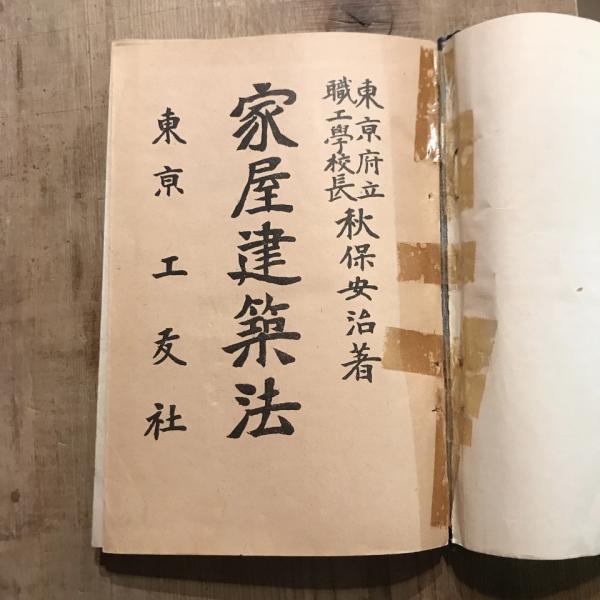 東亰府立
職工學校長
秋保安治著
家屋建築法
東亰工友社